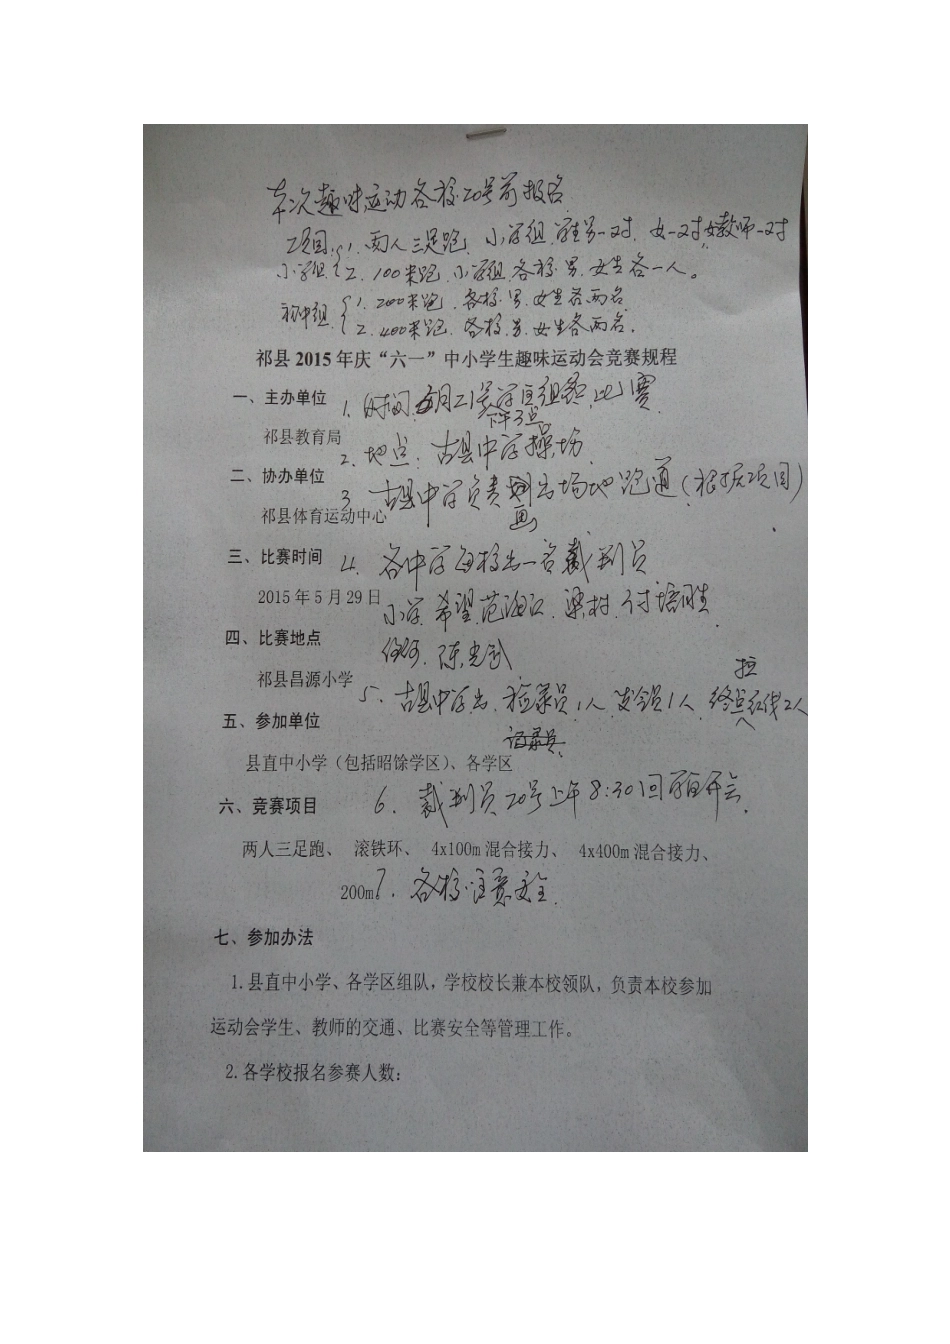 本次趣味运动各校20号前报名
项目: 1. 两人三足跑, 小学组, 男一对, 女一对, 教师一对
小学组 2. 100米跑, 小学组, 各校男、女生各一人。
初中组 1. 200米跑, 各校男、女生各两名
2. 400米跑, 各校男、女生各两名.
祁县2015年庆“六一”中小学生趣味运动会竞赛规程
一、主办单位
1. 时间: 5月21号学区组织比赛.
下午3点
祁县教育局
2. 地点: 古县中学操场.
二、协办单位
3. 古县中学负责画出场地跑道(根据项目)
祁县体育运动中心
三、比赛时间
4. 各中学每校出一名裁判员
2015年5月29日
小学, 希望, 范海江, 梁村, 付培胜
四、比赛地点
陈光武
祁县昌源小学
5. 古县中学出, 检录员1人, 发令员1人, 终点拉红线2人
五、参加单位
记录员
县直中小学(包括昭馀学区)、各学区
六、竞赛项目
6. 裁判员20号上午8:30回学区开会.
两人三足跑、 滚铁环、 4x100m混合接力、 4x400m混合接力、
200m。
7. 各校注意安全.
七、参加办法
1.县直中小学、各学区组队,学校校长兼本校领队,负责本校参加
运动会学生、教师的交通、比赛安全等管理工作。
2.各学校报名参赛人数: